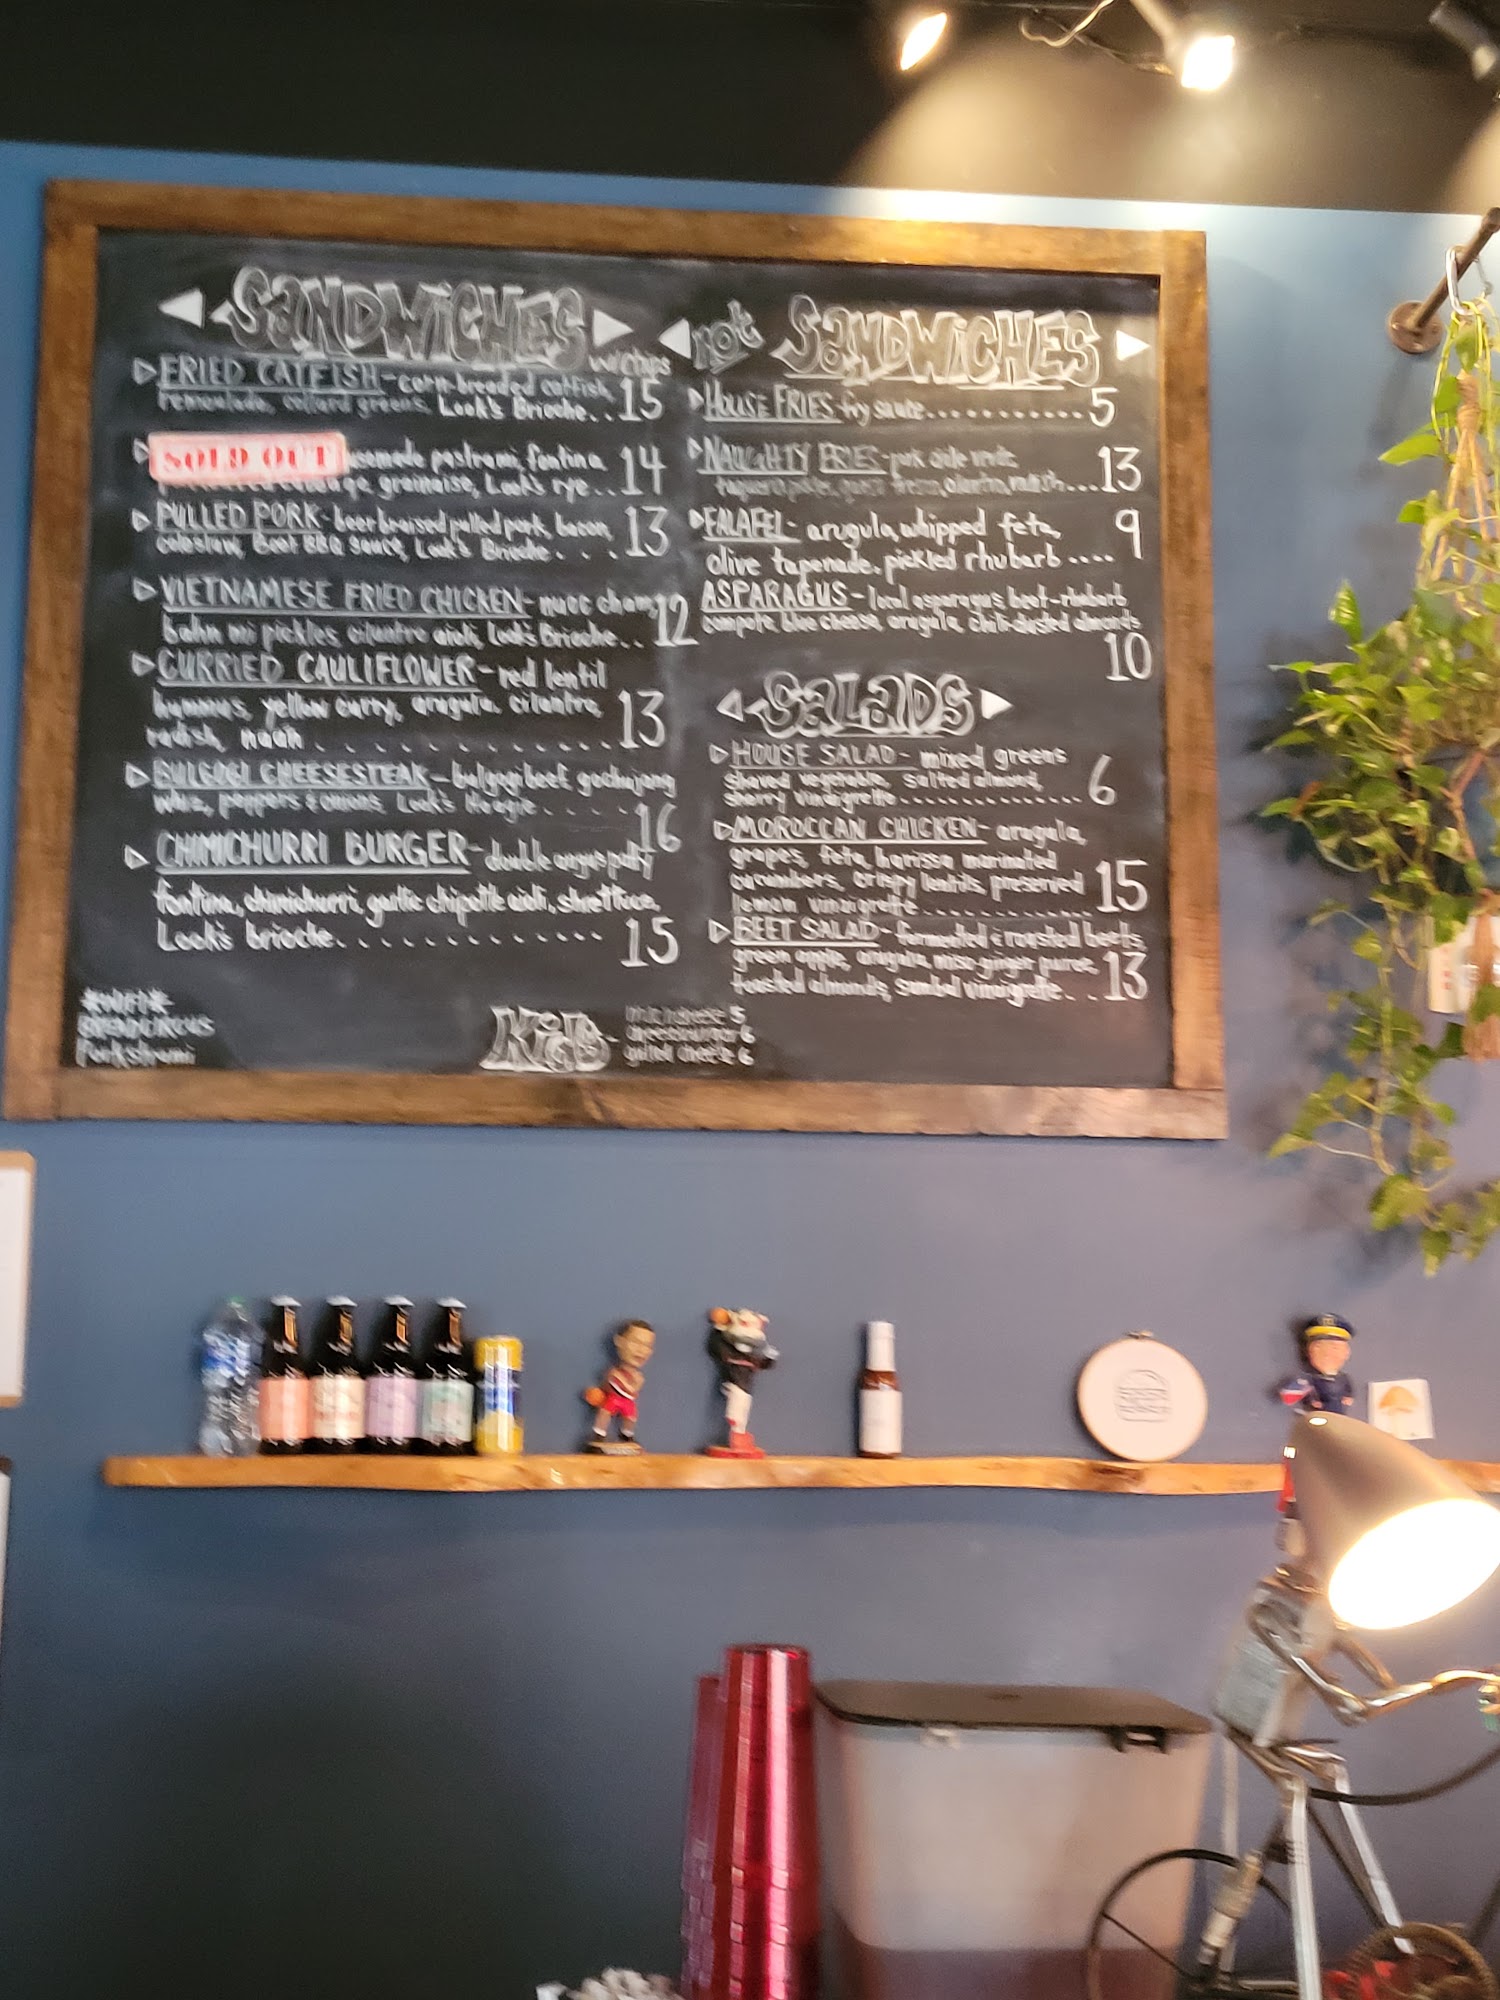 SANDWICHES
w/chips
FRIED CATFISH - corn-breaded catfish,
remoulade, collard greens, Look's Brioche.. 15
SOLD OUT pastrami, fontina 14
Look's rye..
PULLED PORK - beer braised pulled pork, bacon, 13
coleslaw, Beet BBQ sauce, Look's Brioche....
VIETNAMESE FRIED CHICKEN - nuoc cham, 12
bahn mi pickles, cilantro aioli, Look's Brioche..
CURRIED CAULIFLOWER - red lentil
hummus, yellow curry, arugula, cilantro, 13
radish, naan..............
BULGOGI CHEESESTEAK - bulgogi beef, gochujang
whiz, peppers & onions, Look's Hoagie..... 16
CHIMICHURRI BURGER - double angus patty
fontina, chimichurri, garlic chipotle aioli, shrettuce,
Look's brioche............. 15
not SANDWICHES
HOUSE FRIES - fry sauce........... 5
NAUGHTY FRIES - pork chile verde, 13
queso fresco, cilantro,
FALAFEL - arugula, whipped feta, 9
olive tapenade, pickled rhubarb....
ASPARAGUS - local asparagus, beet-rhubarb
compote, blue cheese, arugula, chili-dusted almonds
10
SALADS
HOUSE SALAD - mixed greens
shaved vegetable, salted almond, 6
sherry vinaigrette..............
MOROCCAN CHICKEN - arugula,
grapes, feta, harissa marinated
cucumbers, crispy lentils, preserved 15
lemon vinaigrette.............
BEET SALAD - fermented & roasted beets,
green apple, arugula, miso-ginger puree, 13
toasted almonds, sambal vinaigrette...
*WIFI*
Porkstrami
Kids - mac & cheese 5
cheeseburger 6
grilled cheese 6